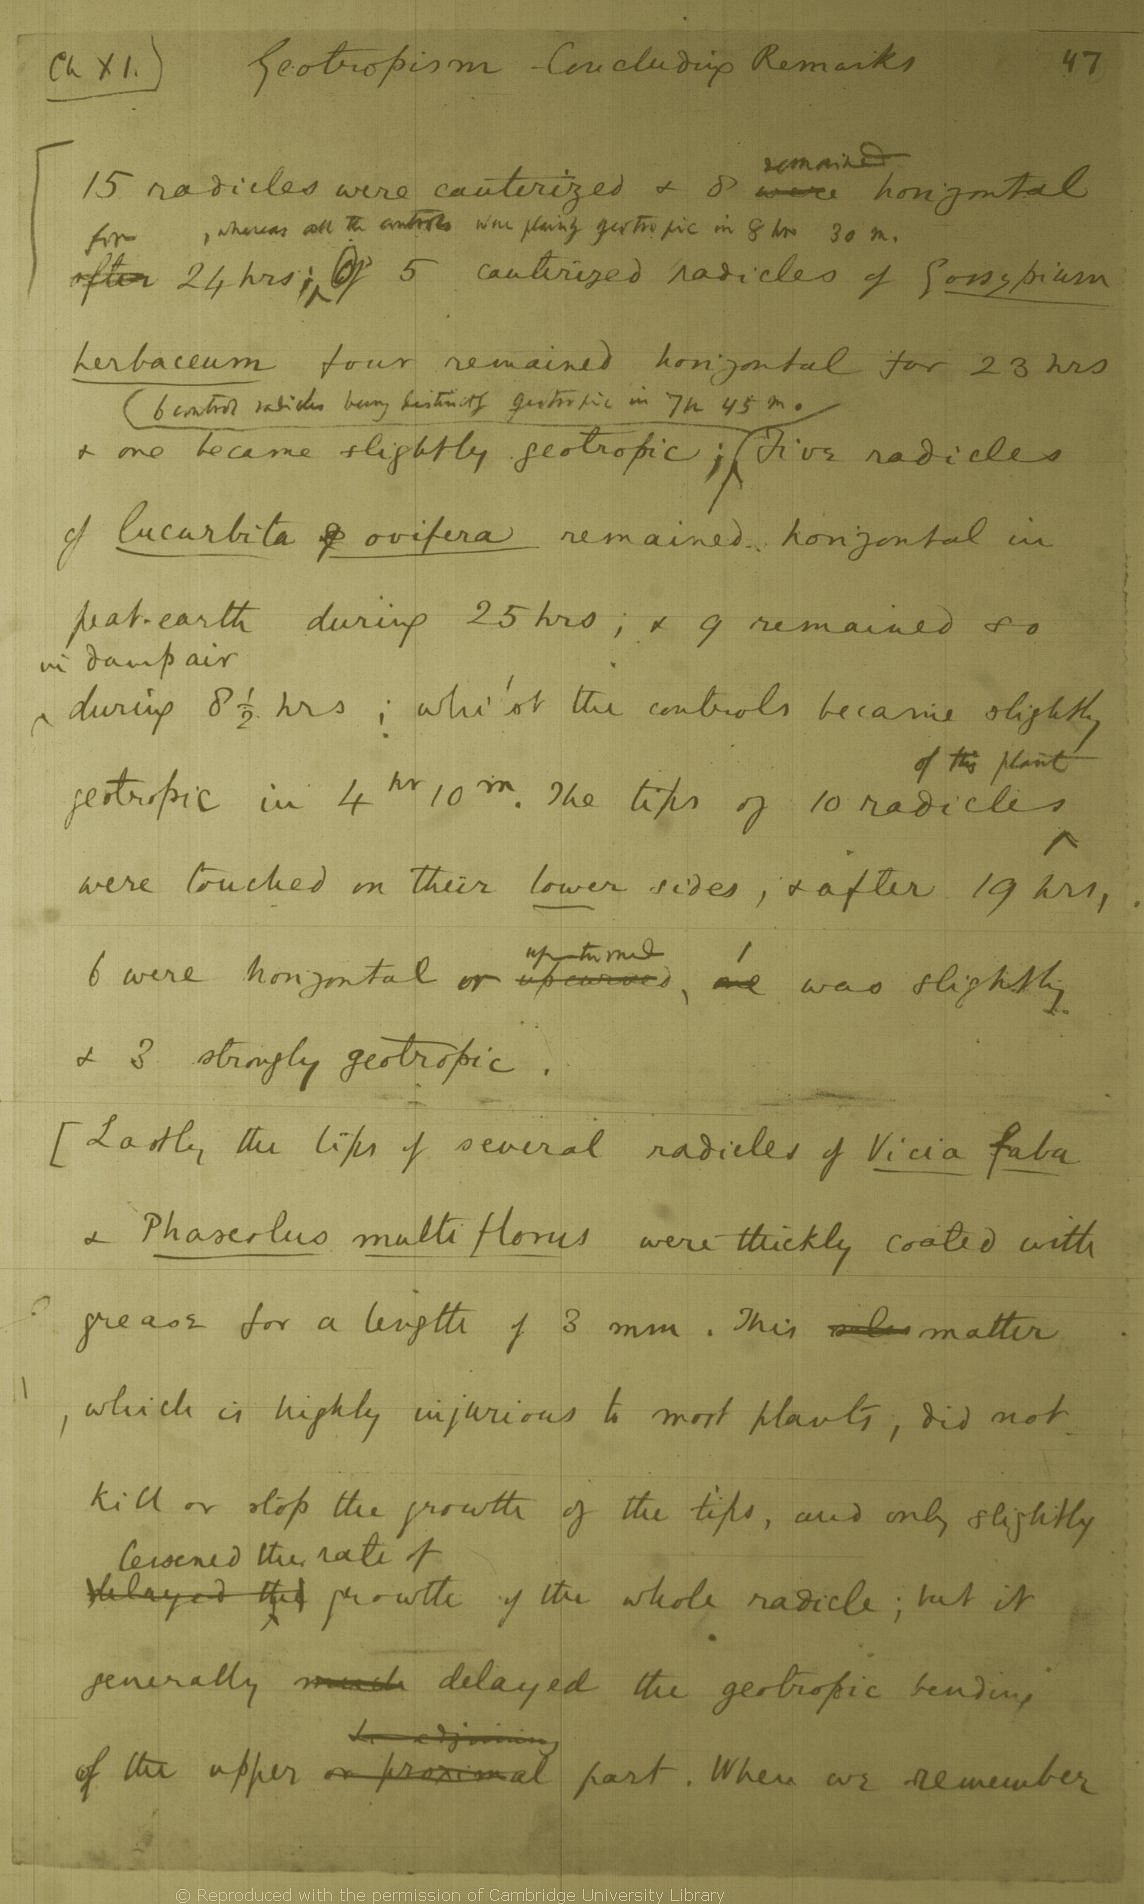 Ch XI.) Geotropism - Concluding Remarks 47
remained
15 radicles were cauterized & 8 were horizontal
for , whereas all the controls were plainly geotropic in 8 hrs 30 m.
after 24 hrs; Of 5 cauterized radicles of Gossypium
herbaceum four remained horizontal for 23 hrs
(6 control radicles being distinctly geotropic in 7h 45 m.
& one became slightly geotropic; Five radicles
of Cucurbita ovifera remained horizontal in
peat-earth during 25 hrs; & 9 remained so
in damp air
during 8 1/2 hrs; whilst the controls became slightly
of this plant
geotropic in 4 hr 10 m. The tips of 10 radicles
were touched on their lower sides, & after 19 hrs,
upturned 1
6 were horizontal or upcurved, one was slightly
& 3 strongly geotropic.
[Lastly the tips of several radicles of Vicia faba
& Phaseolus multiflorus were thickly coated with
grease for a length of 3 mm. This matter
, which is highly injurious to most plants, did not
kill or stop the growth of the tips, and only slightly
lessened the rate of
delayed the growth of the whole radicle; but it
generally much delayed the geotropic bending
the adjoining
of the upper or proximal part. When we remember
© Reproduced with the permission of Cambridge University Library